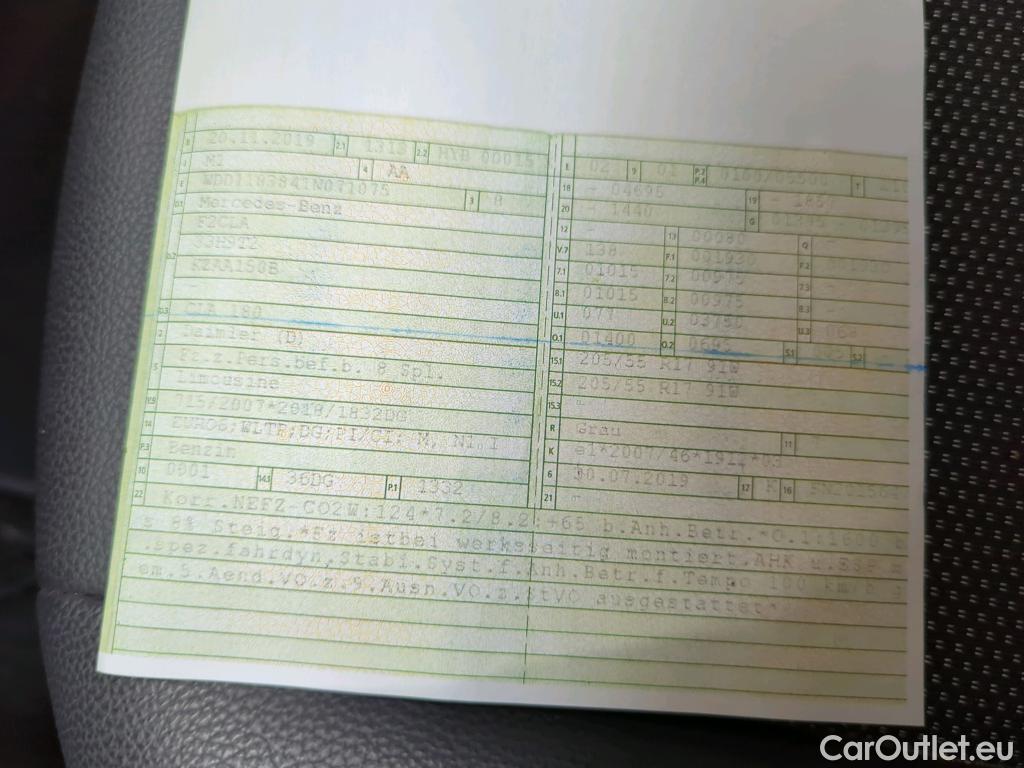 B 20.11.2019 2.1 1313 2.2 HYB 00015
J M1 4 AA
E WDD1183841N071075 3 8
D.1 Mercedes-Benz
F2CLA
D.2 33H9T2
KZAA150B
-
D.3 CLA 180
2 Daimler (D)
5 Fz.z.Pers.bef.b. 8 Spl.
Limousine
V.9 715/2007*2018/1832DG
14 EURO6;WLTP;DG;PI/CI: M, N1 I
P.3 Benzin
10 0001 14.1 36DG P.1 1332
L 02 9 01 P.2 P.4 0100/05500 T 210
18 - 04695 19 - 1830
20 - 1440 G 01395 -
12 - 13 00080 Q -
V.7 138 F.1 001930 F.2 001930
7.1 01015 7.2 00975 7.3 -
8.1 01015 8.2 00975 8.3 -
U.1 077 U.2 03750 U.3 068
O.1 01400 O.2 0695 S.1 005 S.2 -
15.1 205/55 R17 91W
15.2 205/55 R17 91W
15.3 -
R Grau 11
K e1*2007/46*1911*03
6 30.07.2019 17 K 16
21 -
22 Korr.NEFZ-CO2W:124*7.2/8.2:+65 b.Anh.Betr.*O.1:1600 b.
z 8% Steig.*Fz istbei werksseitig montiert.AHK u.ESP m
.spez.fahrdyn.Stabi.Syst.f.Anh.Betr.f.Tempo 100 km/h g
em.3.Aend.VO.z.9.Ausn.VO.z.StVO ausgestattet*
CarOutlet.eu